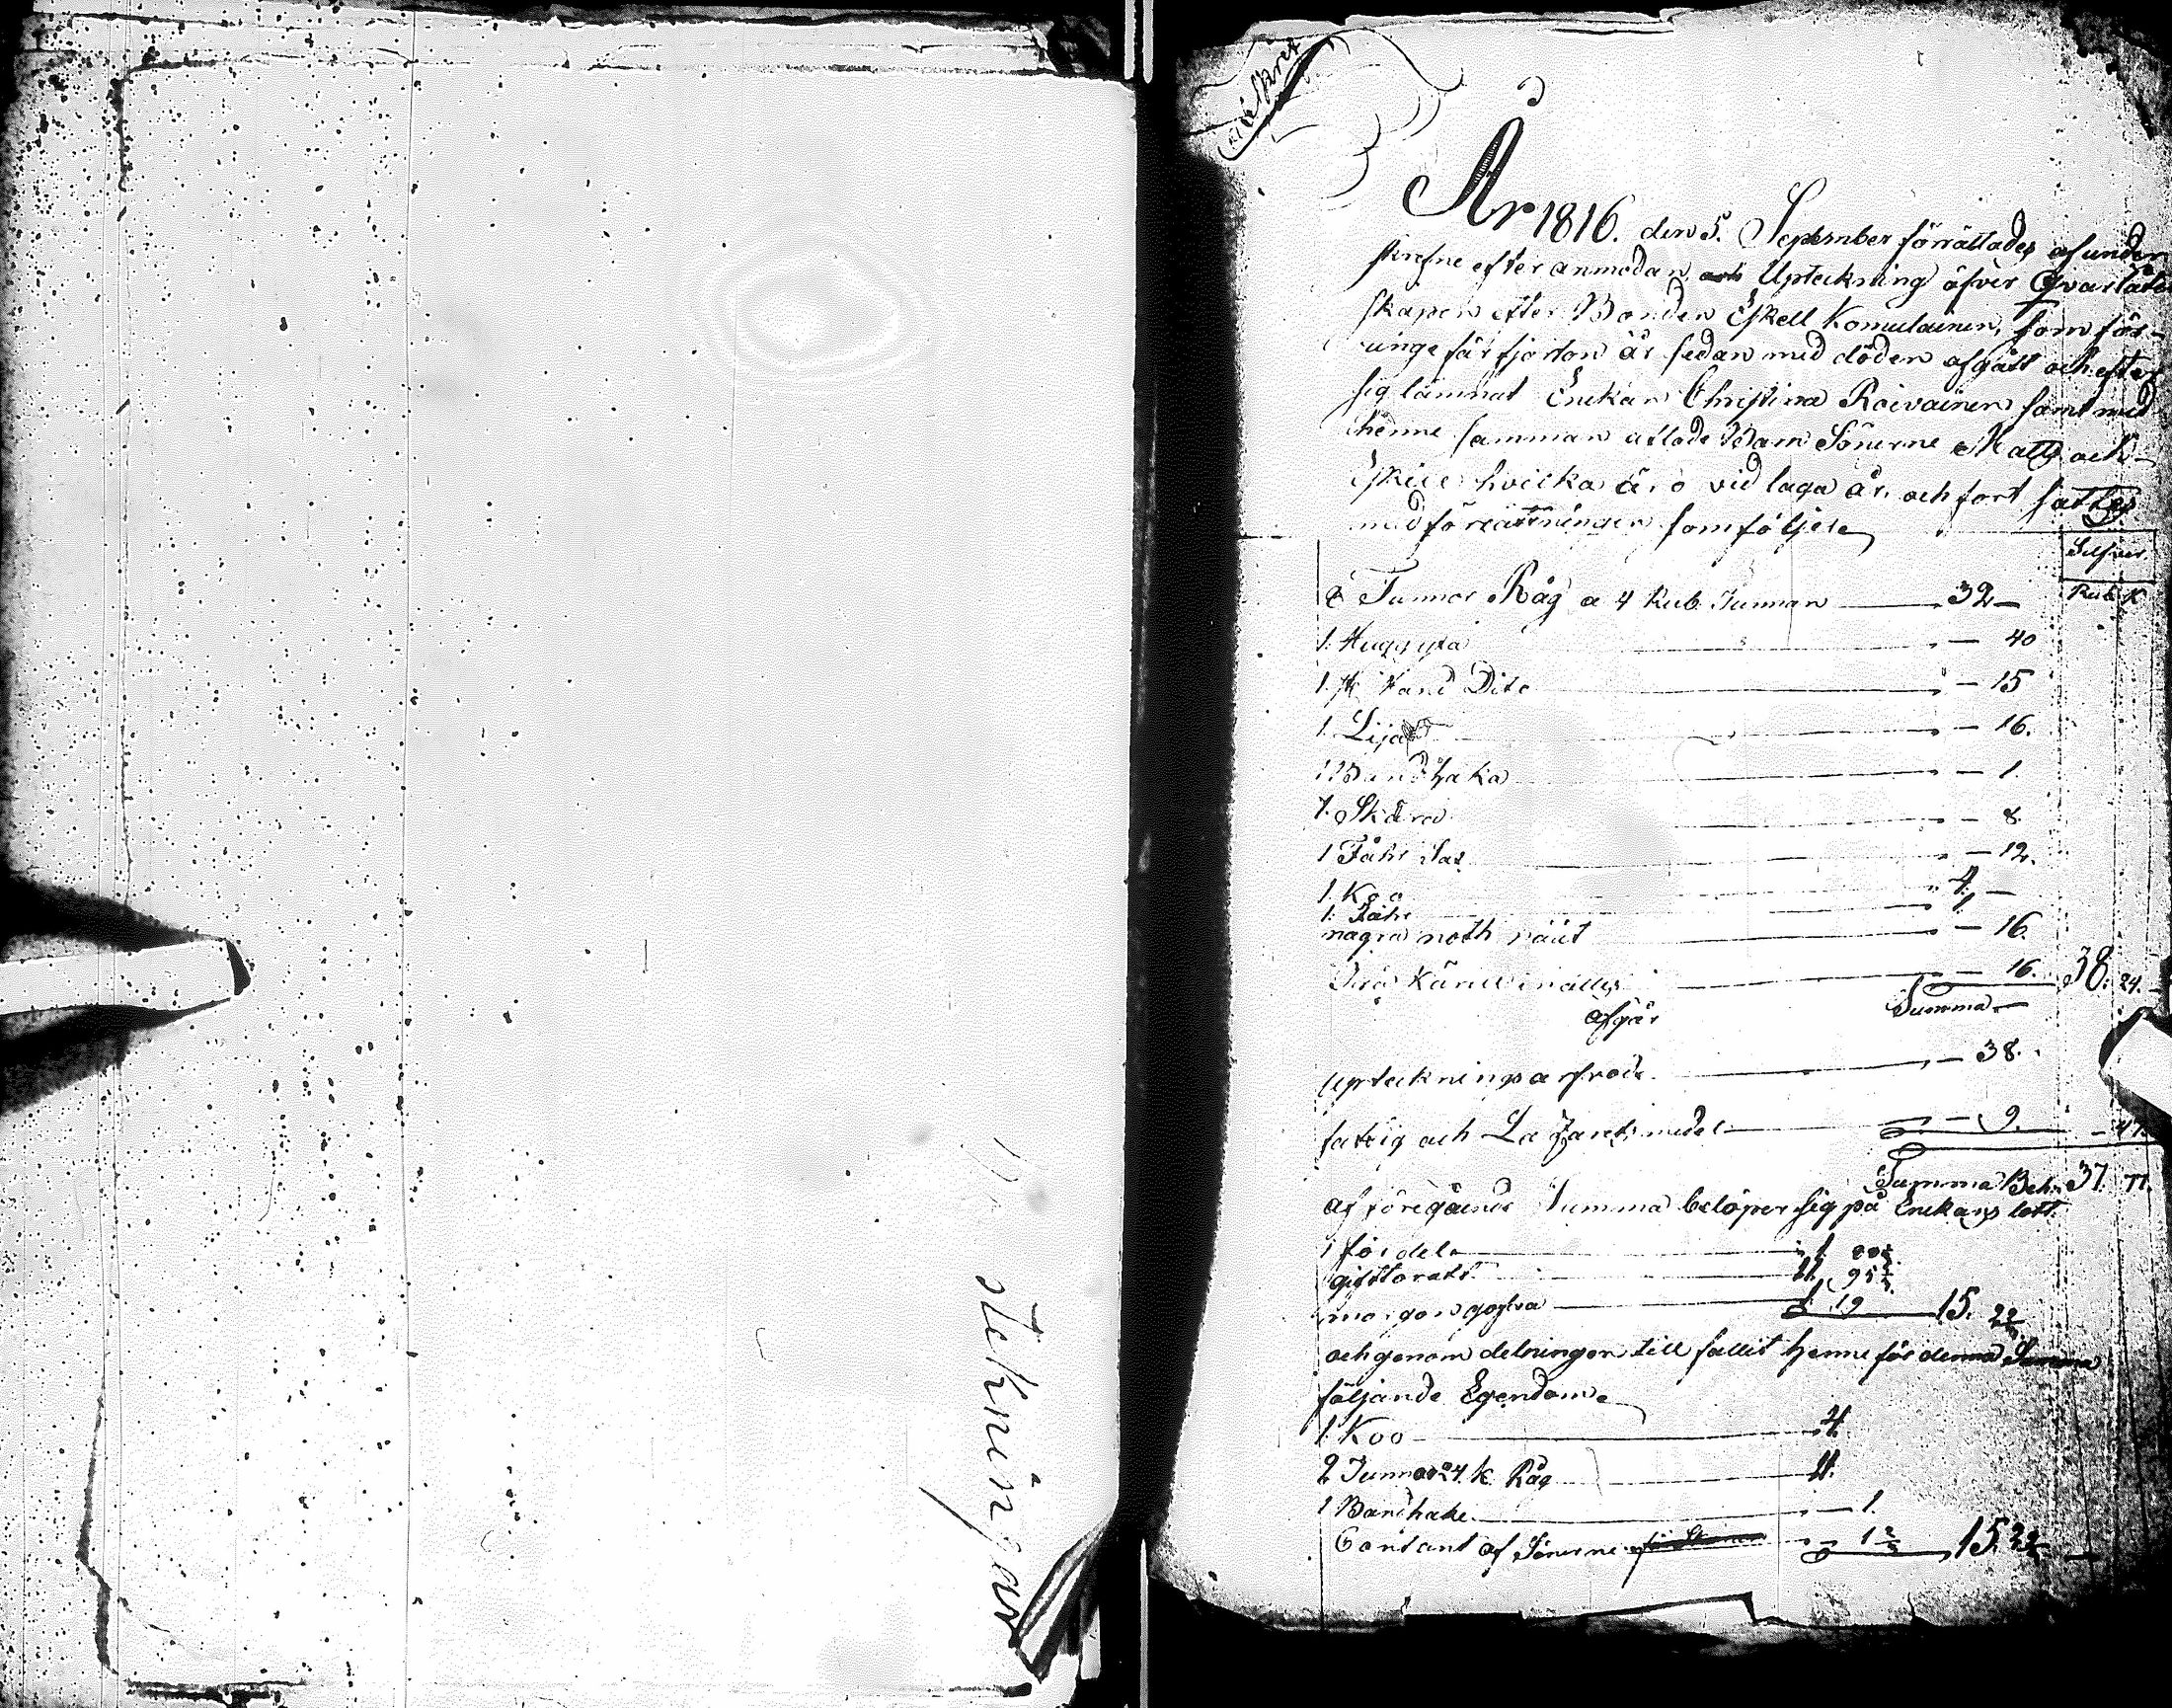 utskrift
År 1816. den 5. September förrättades af under
skrefne efter anmodan Upteckning öfver Qvarlåten
skapen efter Bonden Eskell Komulainen, som för
unge fär fjorton år sedan med döden afgått och efter
sig lämnat Enckan Christina Roivainen samt med
henne samman aflade Barn Sönerne Matts och
Eskell hvilka äro vid laga år, och fort sattes
med förrättningen som följer
Silfver
Rub. K.
8 Tunnor Råg a 4 Rub. Tunnan 32 —
1. Huggyxa — 40
1. Hand Dito — 15
1. Lija — 16.
1 Bandhaka — 1.
1. Skära — 8
1 Fåhr Sax — 12.
1. Koo 4. —
1. Fåhr 1.
några noth näät — 16.
— 16. 38. 24.
Summa
afgår
upteknings arfvode — 38.
fattig och Lazarets medel — 9. — 47.
Summa Beh. 37. 77.
af föregående Summa belöper sig på Enckans lott.
fördel 1.
giftorätt 11. 95
morgongofva 1. 19 15. 22
och genom delningen till fallit henne för denna Summa
följande Egendom
1. Koo 4.
2 Tunnor 24. k. Råg 11.
1 Bandhake — 1.
Contant af Sönerne — 1 2/3 15. 22
tekningar